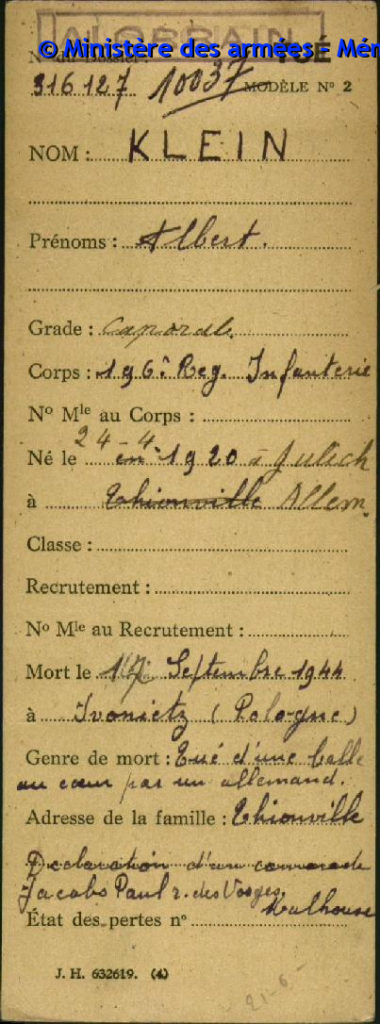 AL LORRAIN
© Ministère des armées - Mém
N° du Dossier :
316127 10037 MODÈLE N° 2
NOM : KLEIN
Prénoms : Albert.
Grade : Caporal
Corps : 196e Reg. Infanterie
N° Mle au Corps :
24-4-
Né le en 1920 à Julich
à Thionville Allem.
Classe :
Recrutement :
N° Mle au Recrutement :
Mort le 17 Septembre 1944
à Ivonietz (Pologne)
Genre de mort : Tué d'une balle
au cœur par un allemand.
Adresse de la famille : Thionville
Déclaration d'un camarade
Jacobs Paul r. des Vosges
Mulhouse
État des pertes n°
J. H. 632619. (4)
21-6-